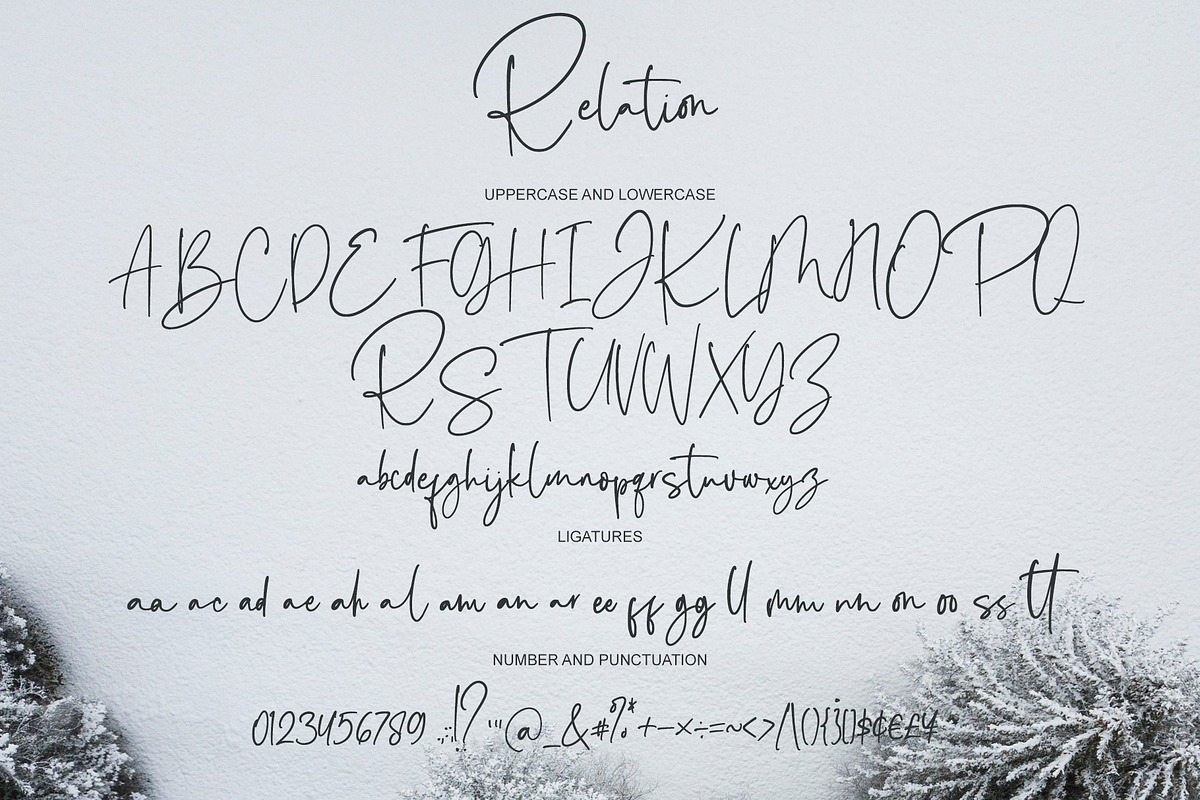 Relation
UPPERCASE AND LOWERCASE
ABCDEFGHIJKLMNOPQ
RSTUVWXYZ
abcdefghijklmnopqrstuvwxyz
LIGATURES
aa ac ad ae ah al am an ar ee ff gg ll mm nn on oo ss tt
NUMBER AND PUNCTUATION
0123456789 .,:;!? '"" @_&#%*+-×÷=~<>/\(){}[]$¢€£¥